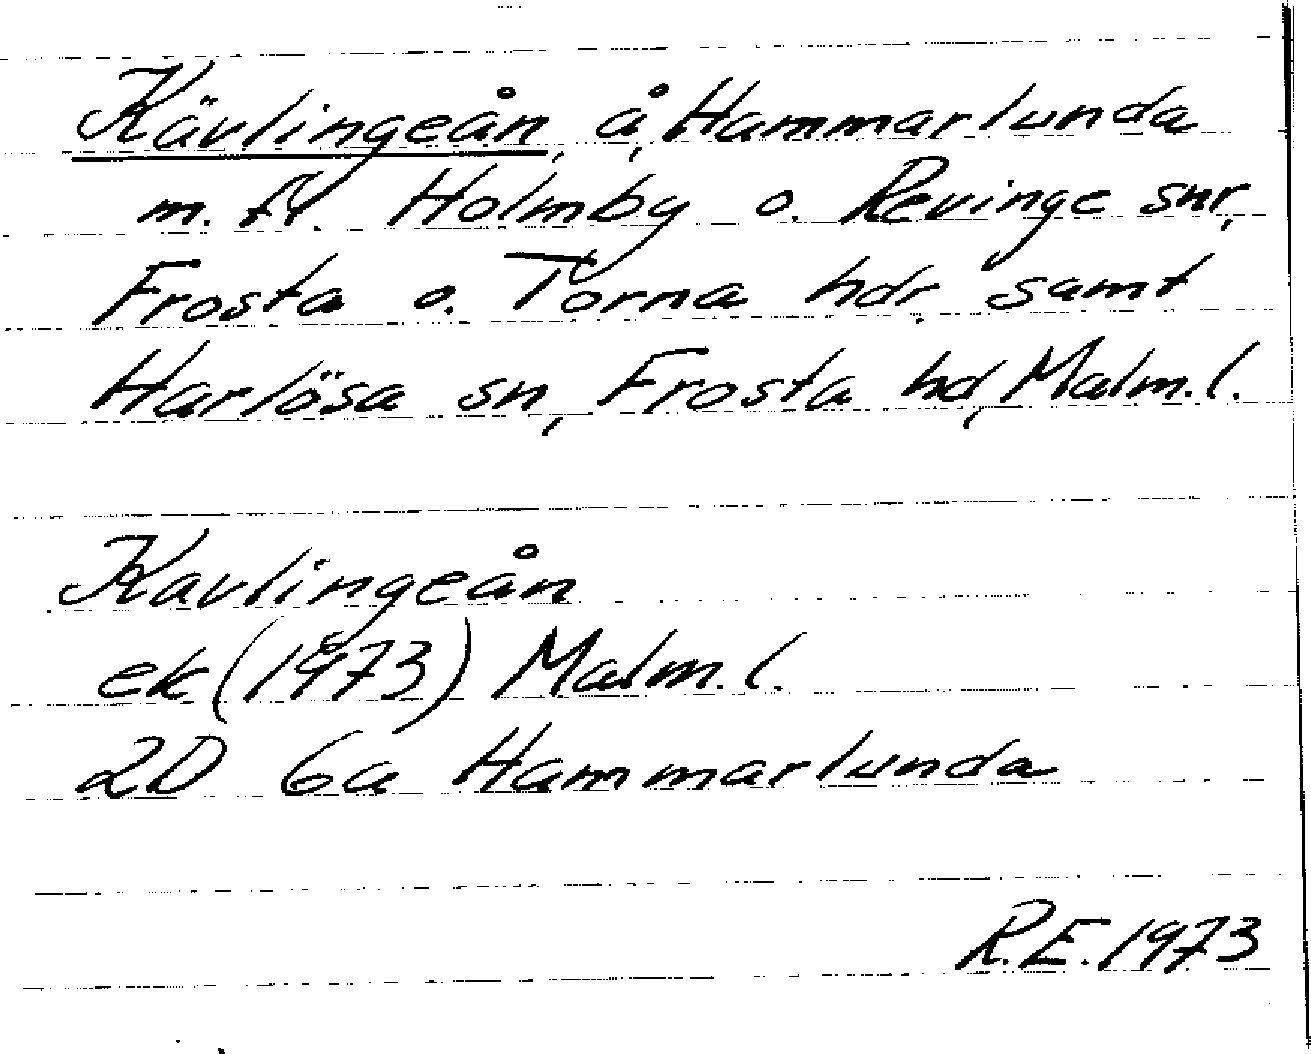 Kävlingeån, å, Hammarlunda
m. fl. Holmby o. Revinge snr,
Frosta o. Torna hdr. samt
Harlösa sn, Frosta hd, Malm. l.
Kavlingeån
ek (1973) Malm. l.
2D 6a Hammarlunda
R.E. 1973